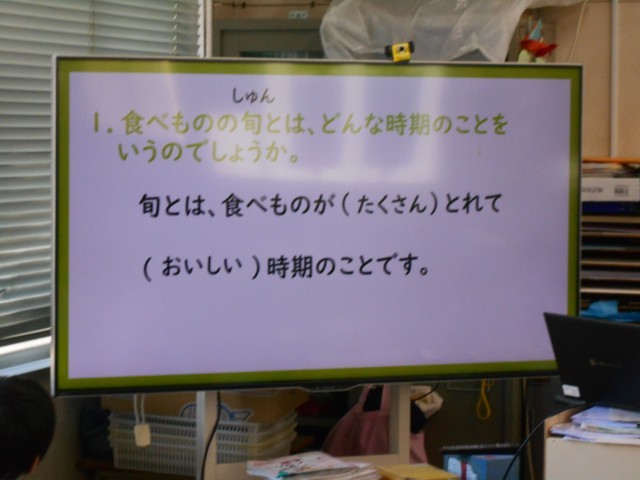 しゅん
1.食べものの旬とは、どんな時期のことを
いうのでしょうか。
旬とは、食べものが(たくさん)とれて
(おいしい)時期のことです。